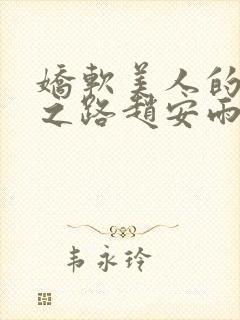 嬌軟美人的
之路趙安雨
韦永玲